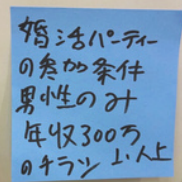 婚活パーティー
の参加条件
男性のみ
年収300万
以上
のチラシ 人